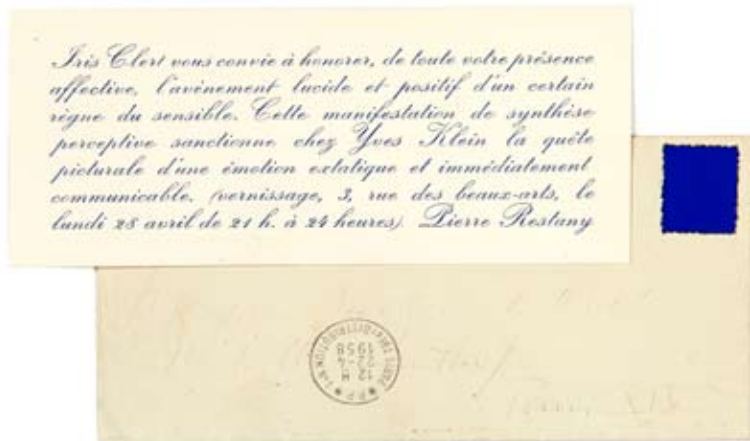 Iris Clert vous convie à honorer, de toute votre présence
affective, l'avènement lucide et positif d'un certain
règne du sensible. Cette manifestation de synthèse
perceptive sanctionne chez Yves Klein la quête
picturale d'une émotion extatique et immédiatement
communicable. (vernissage, 3, rue des beaux-arts, le
lundi 28 avril de 21 h. à 24 heures). Pierre Restany
PARIS
DISTRIBUTION
12 H
1958